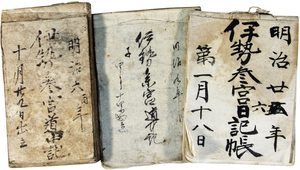 明治廿五年
六
伊勢参宮日記帳
第一月十八日
明治九年
伊勢参宮道中記
明治六酉年
伊勢参宮道中記
十月廿九日出立